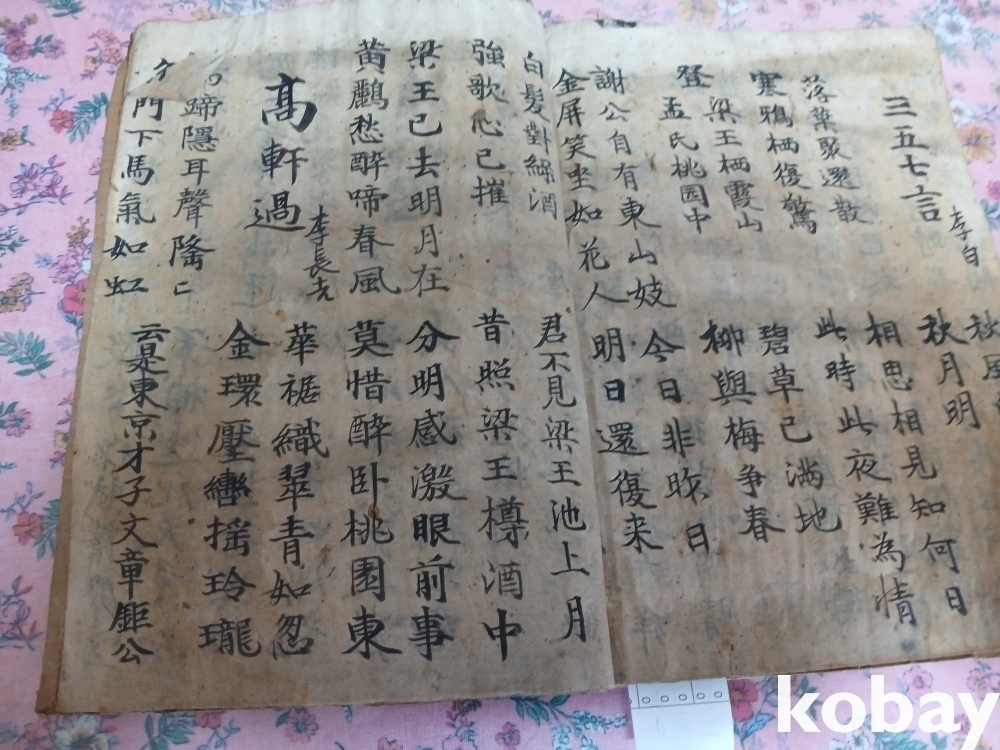 三五七言 李白
秋風
秋月明
落葉聚還散
寒鴉栖復驚
相思相見知何日
此時此夜難為情
登梁王栖霞山
孟氏桃园中
碧草已满地
柳與梅争春
謝公自有東山妓
金屏笑坐如花人
今日非昨日
明日還復来
白髮對綠酒
強歌心已摧
君不見梁王池上月
昔照梁王樽酒中
梁王已去明月在
黃鸝愁醉啼春風
分明感激眼前事
莫惜醉卧桃園東
高軒過 李長吉
華裾織翠青如忩
金環壓轡揺玲瓏
蹄隱耳聲隆〻
門下馬氣如虹
云是東京才子文章鉅公
kobay